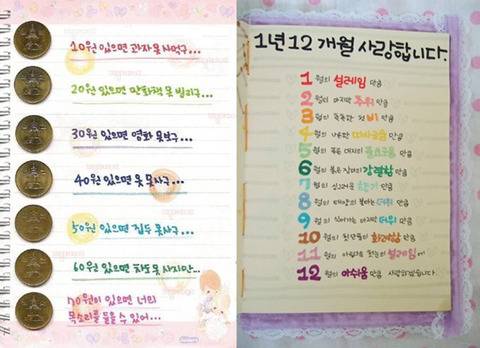 10원 있으면 과자 못 사먹구...
20원 있으면 만화책 못 빌리구...
30원 있으면 영화 못보구...
40원 있으면 옷 못 사구...
50원 있으면 집두 못사구...
60원 있으면 차도 못 사지만...
70원이 있으면 너의
목소리를 들을 수 있어...
1년 12개월 사랑합니다.
1월의 설레임 만큼
2월의 마지막 추위 만큼
3월의 촉촉한 첫 비 만큼
4월의 따사로움 만큼
5월의 푸르름 만큼
6월의 붉은 장미의 강렬함 만큼
7월의 싱그러운 향기 만큼
8월의 태양의 더위 만큼
9월의 마지막 더위 만큼
10월의 화려함 만큼
11월의 설레임
12월의 아쉬움 만큼 사랑합니다.